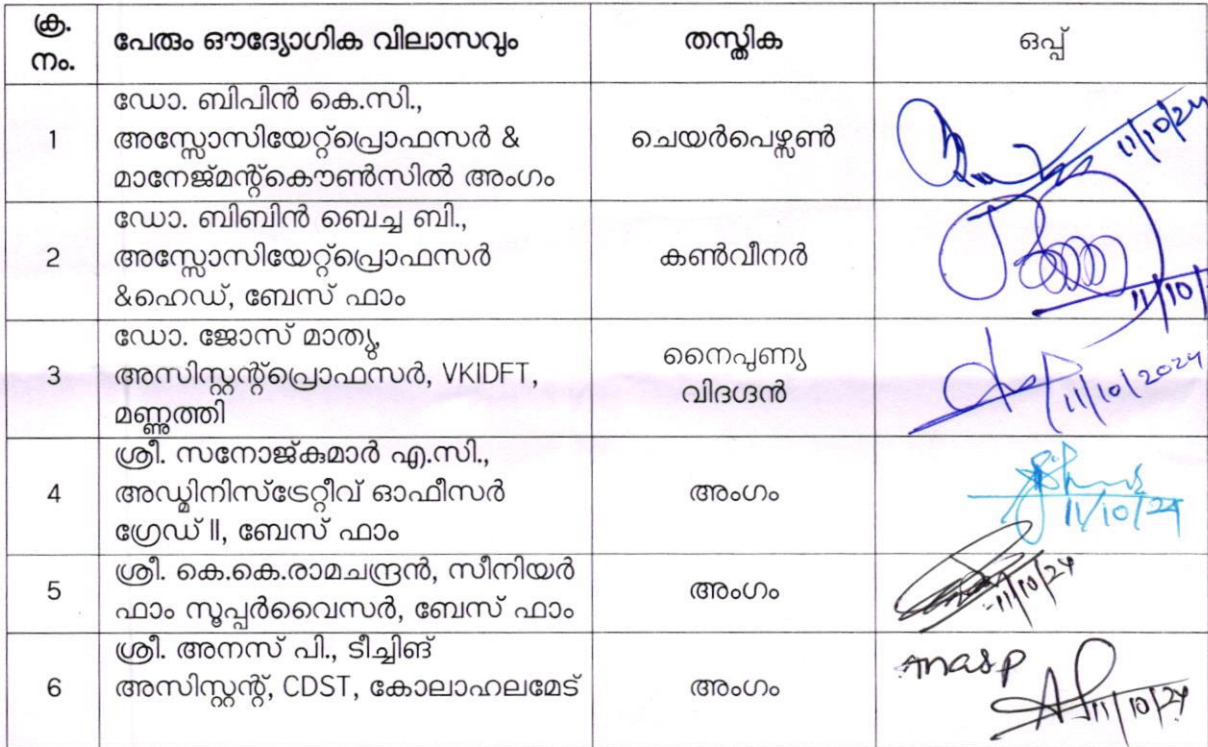 ക്ര.
നം.
പേരും ഔദ്യോഗിക വിലാസവും
തസ്തിക
ഒപ്പ്
ഡോ. ബിപിൻ കെ.സി.,
1 അസ്സോസിയേറ്റ്പ്രൊഫസർ & ചെയർപെഴ്സൺ
മാനേജ്മന്റ്കൌൺസിൽ അംഗം
11/10/24
ഡോ. ബിബിൻ ബെച്ച ബി.,
2 അസ്സോസിയേറ്റ്പ്രൊഫസർ കൺവീനർ
&ഹെഡ്, ബേസ് ഫാം
11/10/
ഡോ. ജോസ് മാത്യു,
3 അസിസ്റ്റന്റ്പ്രൊഫസർ, VKIDFT,
മണ്ണുത്തി
നൈപുണ്യ
വിദഗ്ദൻ
11/10/2024
ശ്രീ. സനോജ്കുമാർ എ.സി.,
4 അഡ്മിനിസ്ട്രേറ്റീവ് ഓഫീസർ അംഗം
ഗ്രേഡ് II, ബേസ് ഫാം
11/10/24
ശ്രീ. കെ.കെ.രാമചന്ദ്രൻ, സീനിയർ
5 ഫാം സൂപ്പർവൈസർ, ബേസ് ഫാം അംഗം
11/10/24
ശ്രീ. അനസ് പി., ടീച്ചിങ്
6 അസിസ്റ്റന്റ്, CDST, കോലാഹലമേട് അംഗം
Anas P
11/10/24